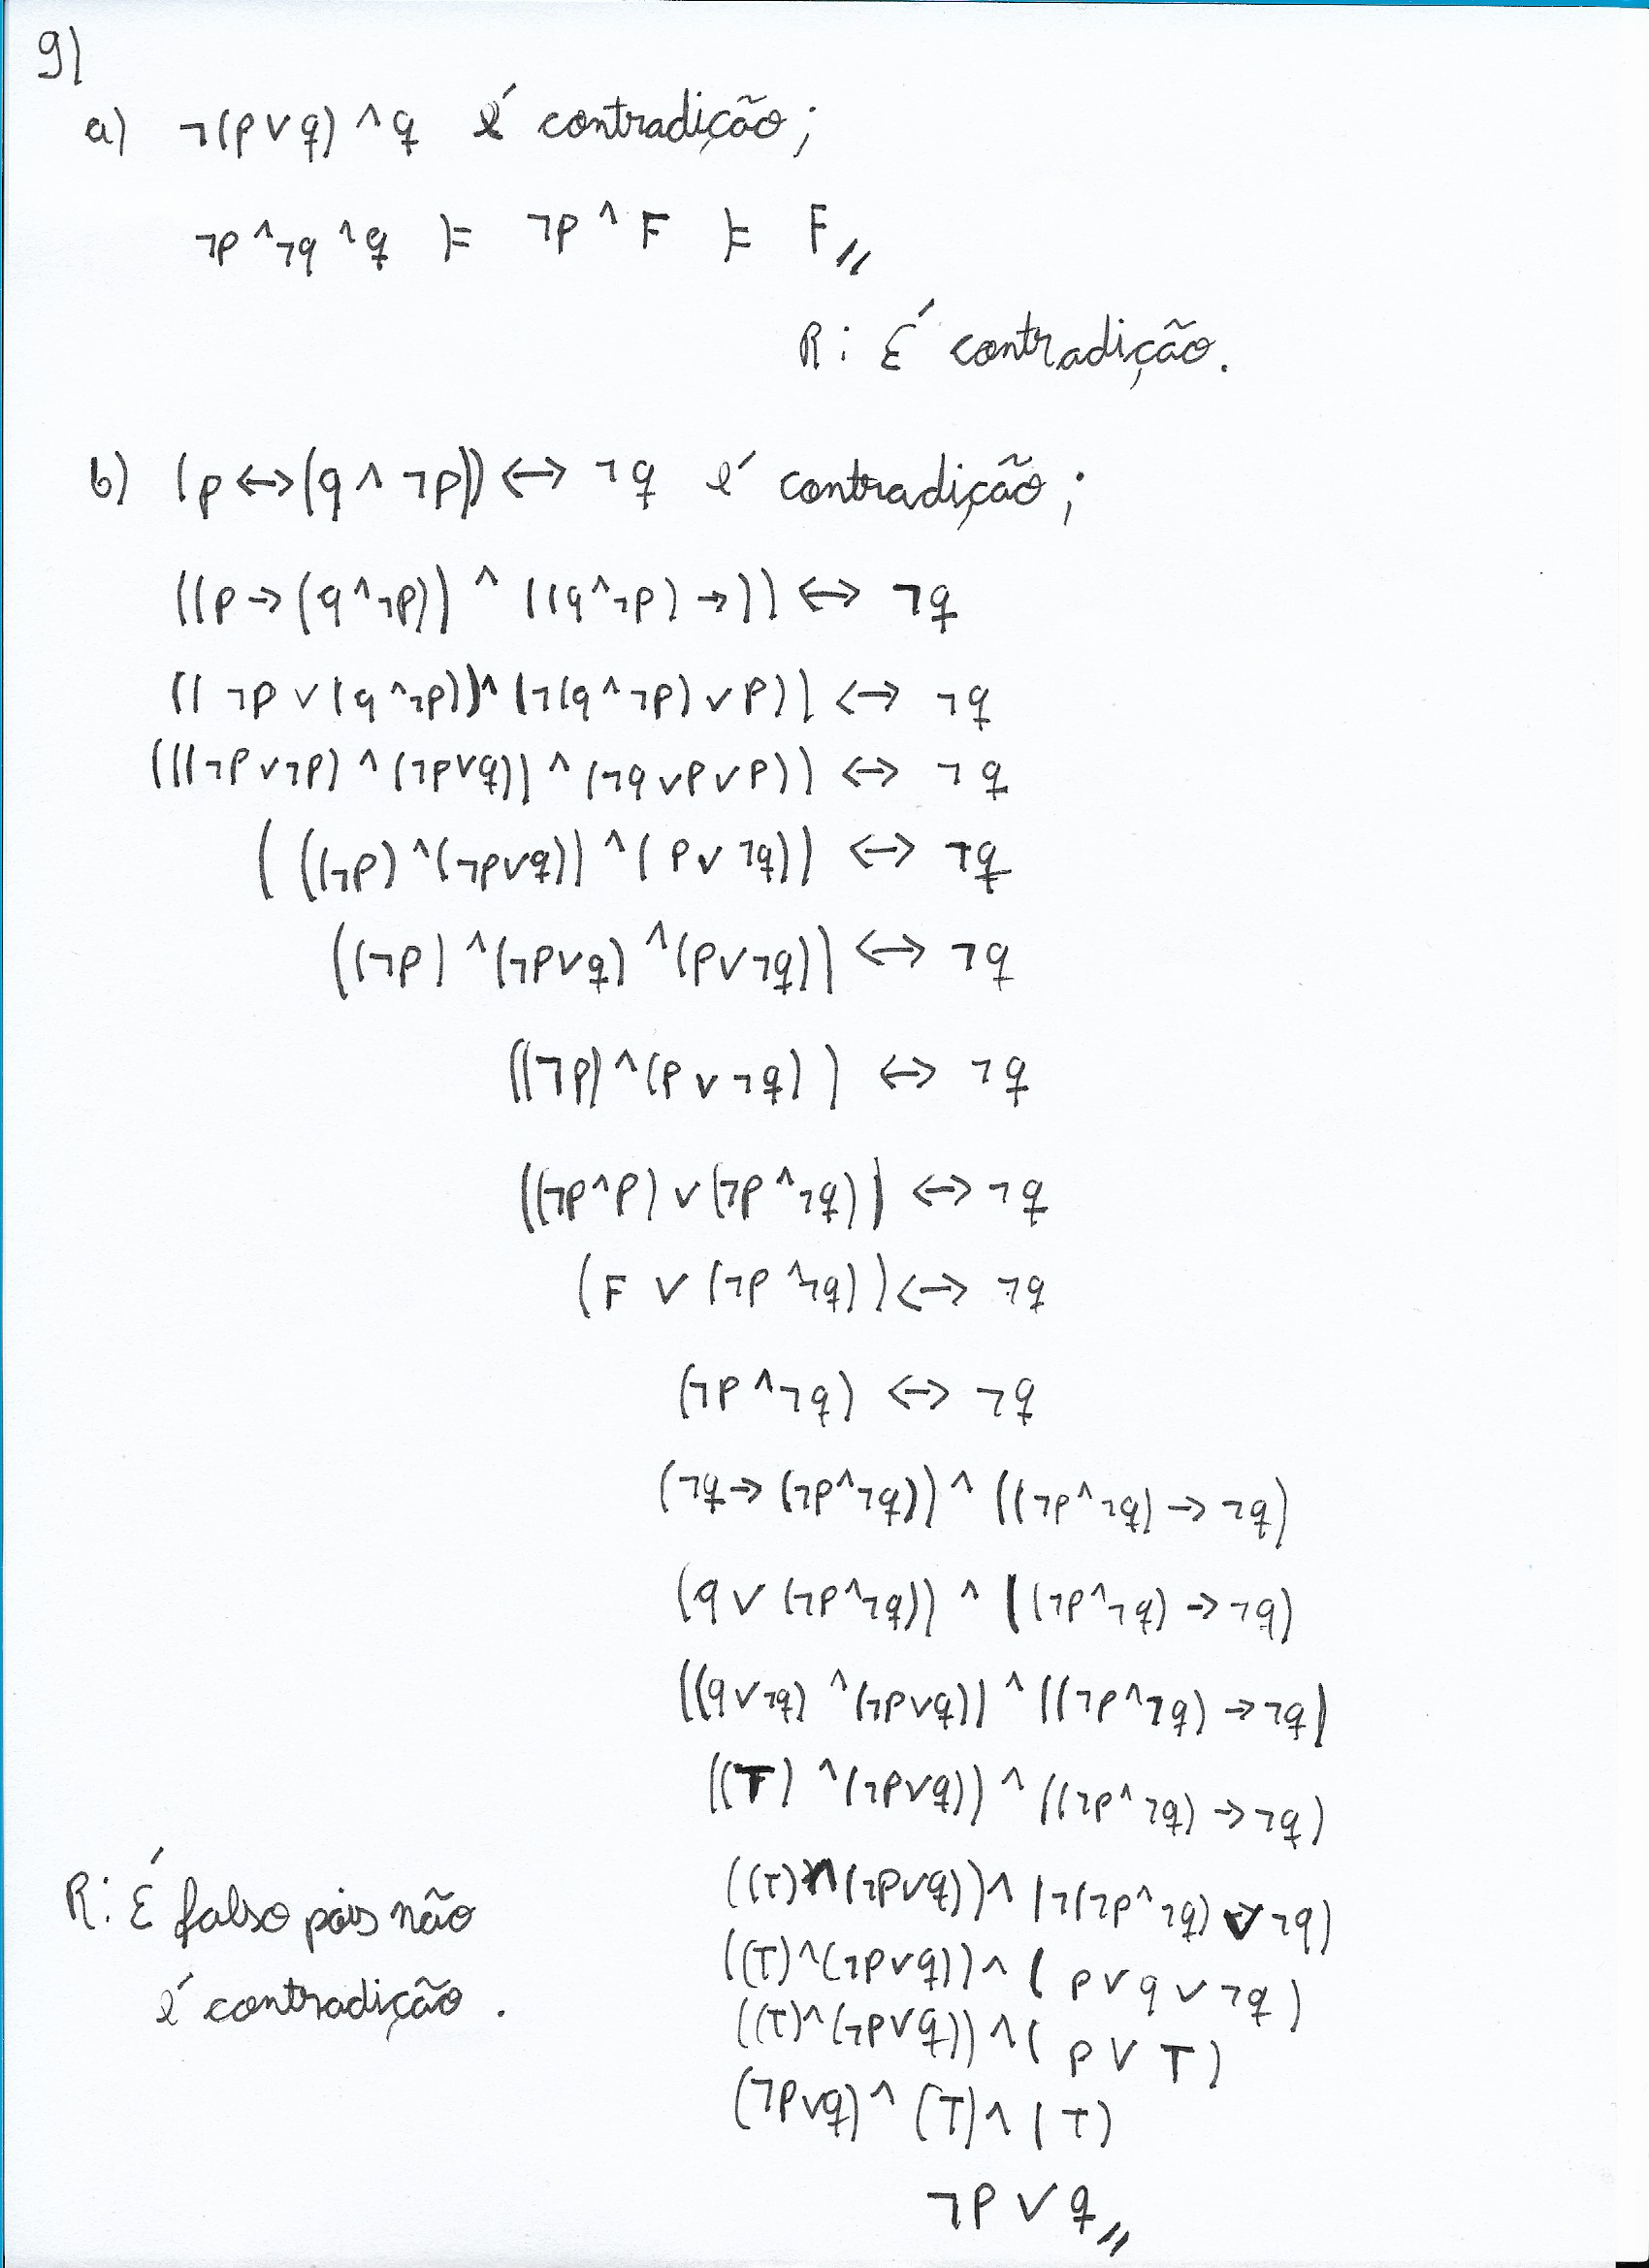 9)
a) ¬(p∨q) ∧ q é contradição;
¬p ∧ ¬q ∧ q ⊨ ¬p ∧ F ⊨ F //
R: É contradição.
b) (p ↔ (q ∧ ¬p)) ↔ ¬q é contradição;
((p → (q ∧ ¬p)) ∧ ((q ∧ ¬p) → )) ↔ ¬q
(( ¬p ∨ (q ∧ ¬p)) ∧ (¬(q ∧ ¬p) ∨ p)) ↔ ¬q
(((¬p ∨ ¬p) ∧ (¬p ∨ q)) ∧ (¬q ∨ p ∨ p)) ↔ ¬q
( ((¬p) ∧ (¬p ∨ q)) ∧ ( p ∨ ¬q)) ↔ ¬q
((¬p) ∧ (¬p ∨ q) ∧ (p ∨ ¬q)) ↔ ¬q
((¬p) ∧ (p ∨ ¬q) ) ↔ ¬q
((¬p ∧ p) ∨ (¬p ∧ ¬q)) ↔ ¬q
(F ∨ (¬p ∧ ¬q)) ↔ ¬q
(¬p ∧ ¬q) ↔ ¬q
(¬q → (¬p ∧ ¬q)) ∧ ((¬p ∧ ¬q) → ¬q)
(q ∨ (¬p ∧ ¬q)) ∧ ((¬p ∧ ¬q) → ¬q)
((q ∨ ¬q) ∧ (¬p ∨ q)) ∧ ((¬p ∧ ¬q) → ¬q)
((T) ∧ (¬p ∨ q)) ∧ ((¬p ∧ ¬q) → ¬q)
((T) ∧ (¬p ∨ q)) ∧ (¬(¬p ∧ ¬q) ∨ ¬q)
((T) ∧ (¬p ∨ q)) ∧ ( p ∨ q ∨ ¬q)
((T) ∧ (¬p ∨ q)) ∧ ( p ∨ T )
(¬p ∨ q) ∧ (T) ∧ (T)
¬p ∨ q //
R: É falso pois não
é contradição.